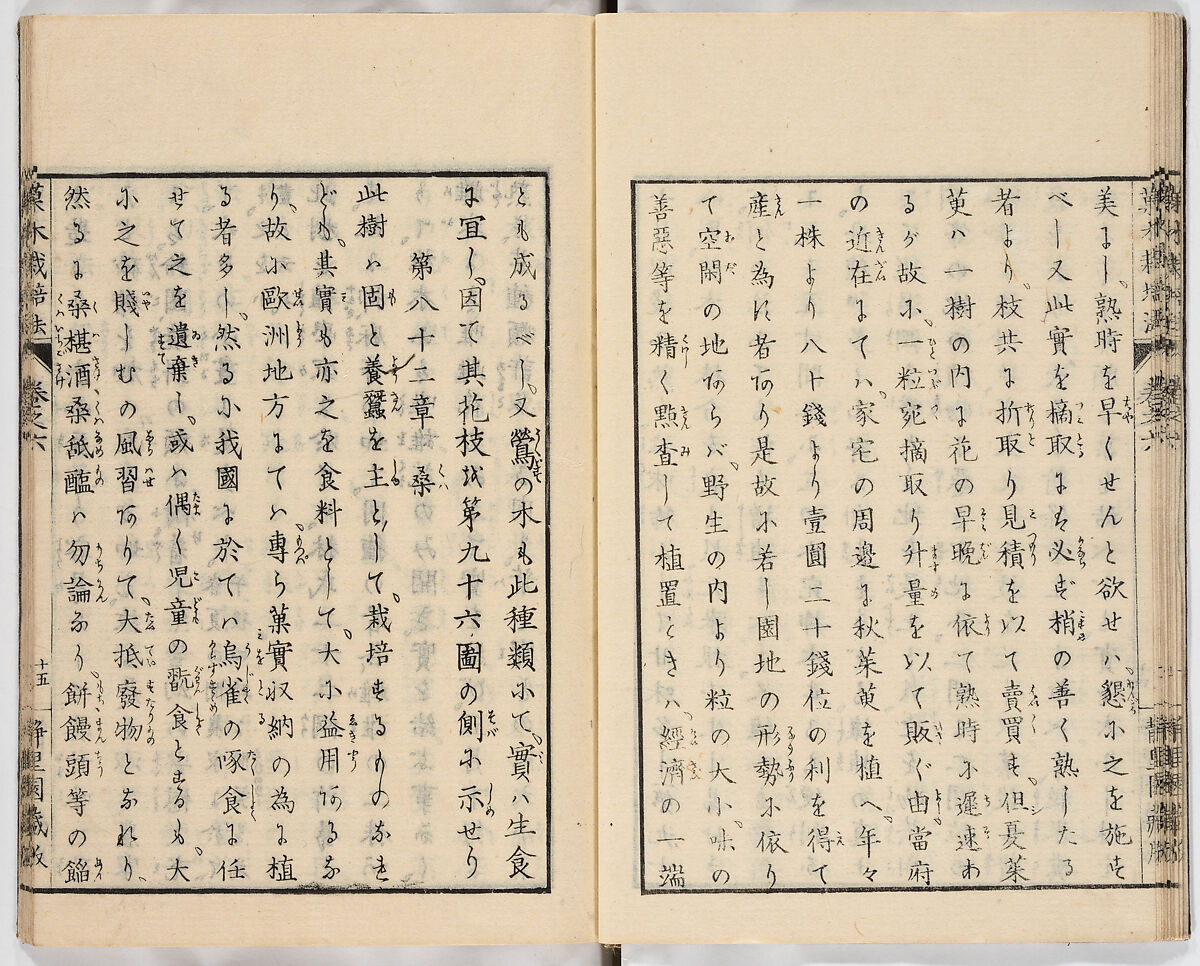 美よし、熟時を早くせんと欲せハ、懇ホ之を施す
べし又此實を摘取よハ必ず梢の善く熟したる
者より、枝共よ折取り見積を以て賣買す、但夏茱
萸ハ一樹の内よ花の早晩よ依て熟時ホ遲速あ
るが故ホ、一粒宛摘取り升量を以て販ぐ由當府
の近在よてハ、家宅の周邊よ秋茱萸を植へ、年々
一株より八十錢より壹圓二十錢位の利を得て
産と為に者あり是故ホ若し園地の形勢ホ依り
て空閑の地あらバ、野生の内より粒の大小味の
善惡等を精く點査して植置ときハ、經濟の一端
とも成るべし、又鶯の木も此種類ホて、實ハ生食
よ宜し、因て其花枝を第九十六圖の側ホ示せり
第八十二章 桑
此樹ハ固と養蠶を主として、栽培するものなれ
ども、其實も亦之を食料として、大ホ益用あるな
り、故ホ歐洲地方よてハ、專ら菓實収納の為よ植
る者多し、然るホ我國よ於てハ烏雀の啄食よ任
せて之を遺棄し、或ハ偶く児童の翫食とするも、大
ホ之を賤しむの風習ありて、大抵廢物となれり、
然るよ桑椹酒桑舐醢ハ勿論なり餅饅頭等の餡
菓木栽培法 卷之六 十五 静里園藏版